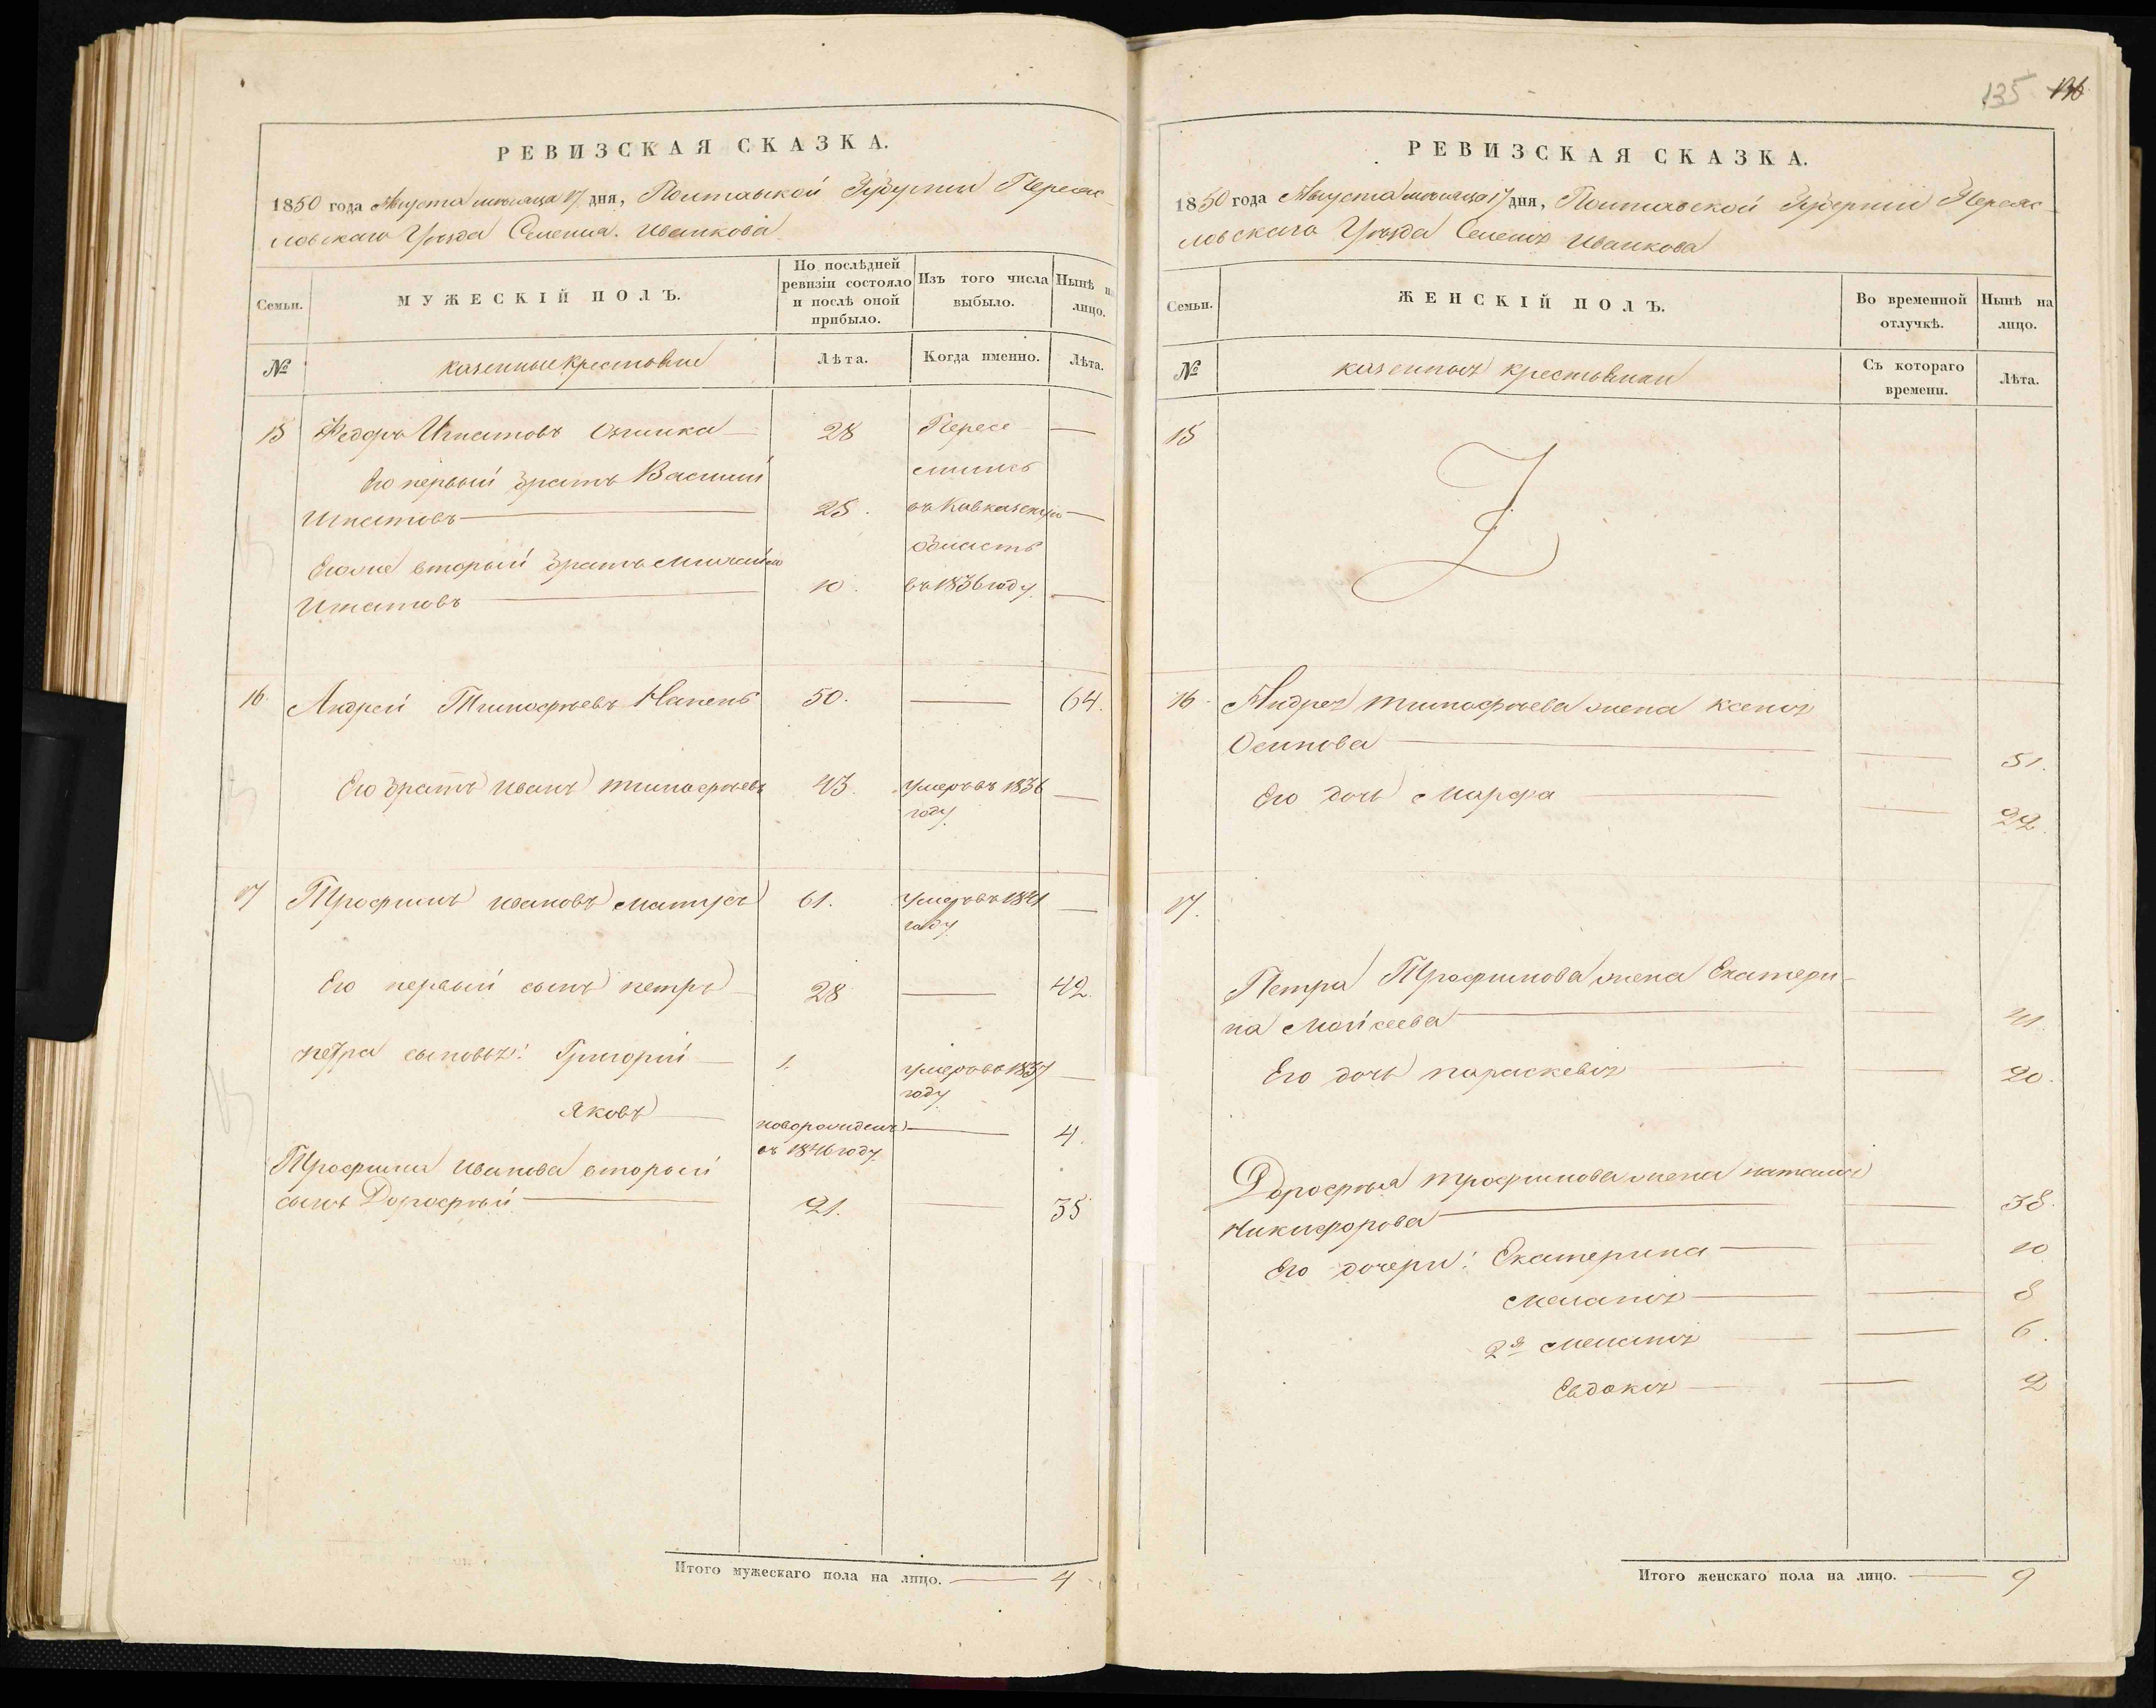 РЕВИЗСКАЯ СКАЗКА.
1850 года Августа месяца 17 дня, Полтавской Губернии Переяс
ловскаго Уезда Селения Иванкова
Семьи.
МУЖЕСКІЙ ПОЛЪ.
По послѣдней
ревизіи состояло
и послѣ оной
прибыло.
Изъ того числа
выбыло.
Нынѣ на
лицо.
№
казенные крестьяне
Лѣта.
Когда именно.
Лѣта.
15 Федоръ Игнатовъ 28 Пересе
Его первый братъ Василий лились
Игнатовъ 25. въ Кавказскую
Егоже второй братъ Михайло область
Игнатовъ 10. въ 1836 году
16. Андрей Тимофѣевъ 50. 64.
Его братъ Иванъ Тимофѣевъ 43. умеръ въ 1836
году
17 Трофимъ Ивановъ Матусъ 61. умеръ въ 1841
году
Его первый сынъ Петръ 28 42.
Петра сыновья: Григорій 1. умеръ въ 1837
году
Яковъ новорожденъ 4.
въ 1846 году
Трофима Иванова второй
сынъ Дорофѣй 21. 35
Итого мужескаго пола на лицо. 4
135 136
РЕВИЗСКАЯ СКАЗКА.
1850 года Августа месяца 17 дня, Полтавской Губерніи Переяс
ловскаго Уѣзда Селенія Иванкова
Семьи.
ЖЕНСКІЙ ПОЛЪ.
Во временной
отлучкѣ.
Нынѣ на
лицо.
№
казенныя крестьянки
Съ котораго
времени.
Лѣта.
15
16 Андрея Тимофѣева жена Ксенія
Осипова 51.
Его дочь Марфа 22.
17.
Петра Трофимова жена Екатери-
на Мойсеева 41
Его дочь Параскевія 20.
Дорофѣя Трофимова жена Наталія
Никифорова 38.
Его дочери: Екатерина 10
Меланія 8
2я Меланія 6.
Евдокія 2
Итого женскаго пола на лицо. 9